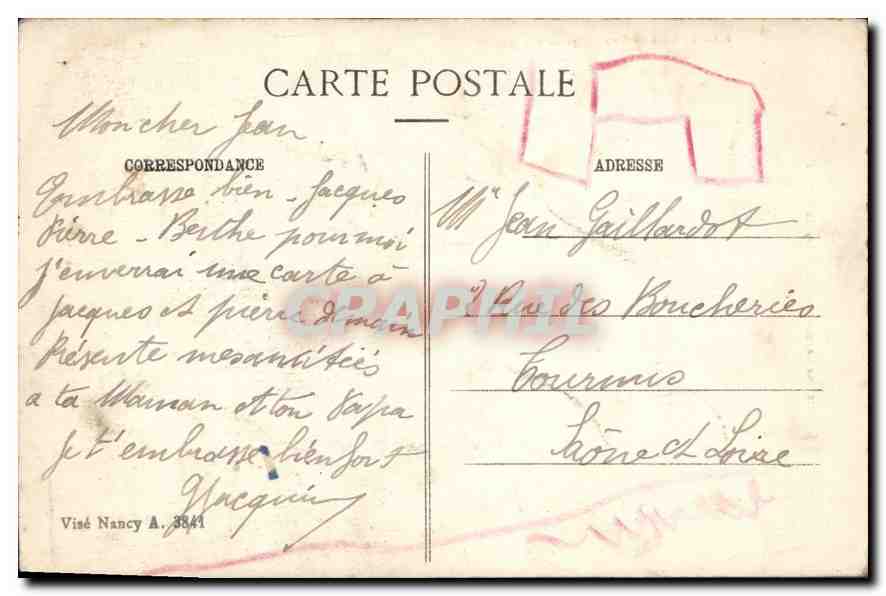 CARTE POSTALE
Mon cher Jean
CORRESPONDANCE
Embrasse bien - Jacques
Pierre - Berthe pour moi
j'enverrai une carte à
Jacques et pierre demain
Présente mes amitiés
a ta Maman et ton Papa
Je t'embrasse bien fort
GJacquin
Visé Nancy A. 3841
ADRESSE
Mr Jean Gaillardot
Rue des Boucheries
Tournus
Saône et Loire
CPAPHIL